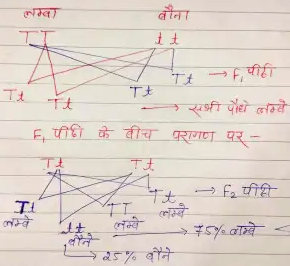 लम्बा बौना
TT tt
Tt Tt Tt Tt → F₁ पीढी
→ सभी पौधे लम्बे
F₁ पीढी के बीच परागण पर -
Tt Tt
Tt tt TT Tt → F₂ पीढी
लम्बे बौने लम्बे लम्बे → 75% लम्बे
→ 25% बौने